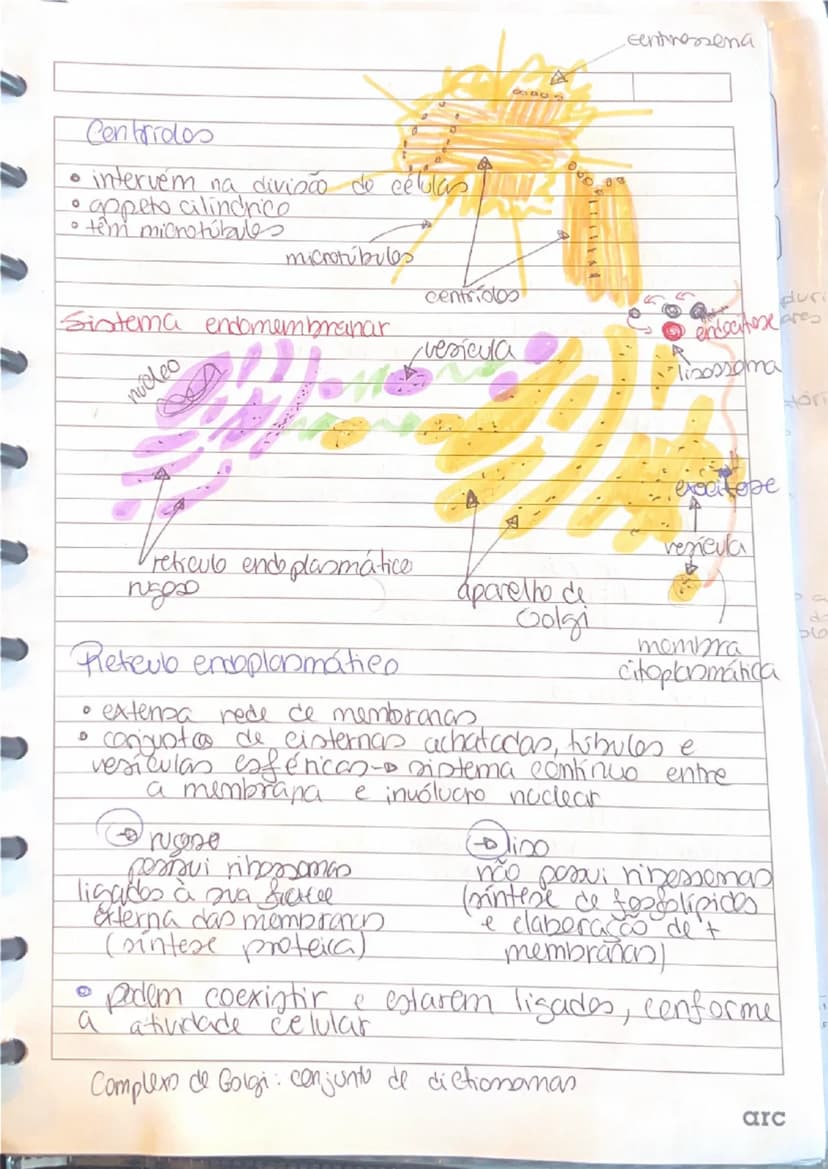 centrossoma
Centríolos
• intervém na divisão de células
• aspeto cilíndrico
• têm microtúbulos
microtúbulos
centríolos
Sistema endomembranar
endocitose
vesícula
lisossoma
núcleo
exocitose
vesícula
retículo endoplasmático
rugoso
aparelho de
Golgi
membra
citoplasmática
Retículo endoplasmático
• extensa rede de membranas
• conjuntos de cisternas achatadas, túbulos e
vesículas esféricas → sistema contínuo entre
a membrana e invólucro nuclear
→ rugoso
possui ribossomas
ligados à sua
externa das membranas
(síntese proteica)
→ liso
não possui ribossomas
(síntese de fosfolípidos
e elaboração de +
membranas)
• podem coexistir e estarem ligados, conforme
a atividade celular
Complexo de Golgi: conjunto de dictiossomas
arc